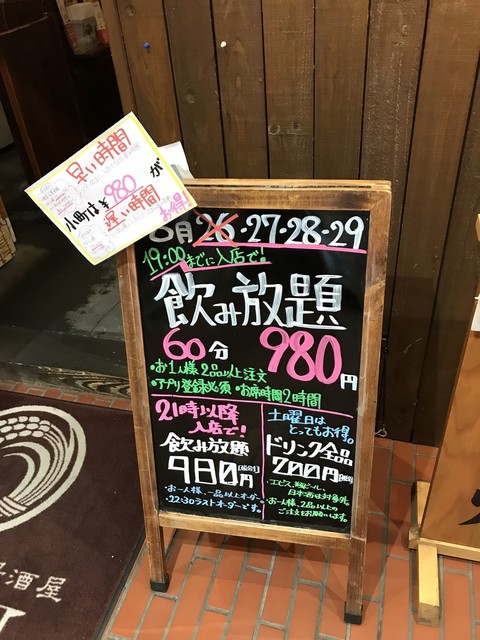 早い時間
小町は¥980が
遅い時間
お得!
8月 26・27・28・29
19:00までに入店で!
飲み放題
60分 980円
・お1人様2品以上注文
・アプリ登録必須 ・お席時間2時間
21時以降
入店で!
飲み放題
980円
・お一人様、一品以上オーダー
・22:30ラストオーダーです。
土曜日は
とってもお得。
ドリンク全品
200円
・エビス、瓶ビール、
日本酒は対象外。
・お一人様、2品以上の
ご注文をお願いします。
酒屋